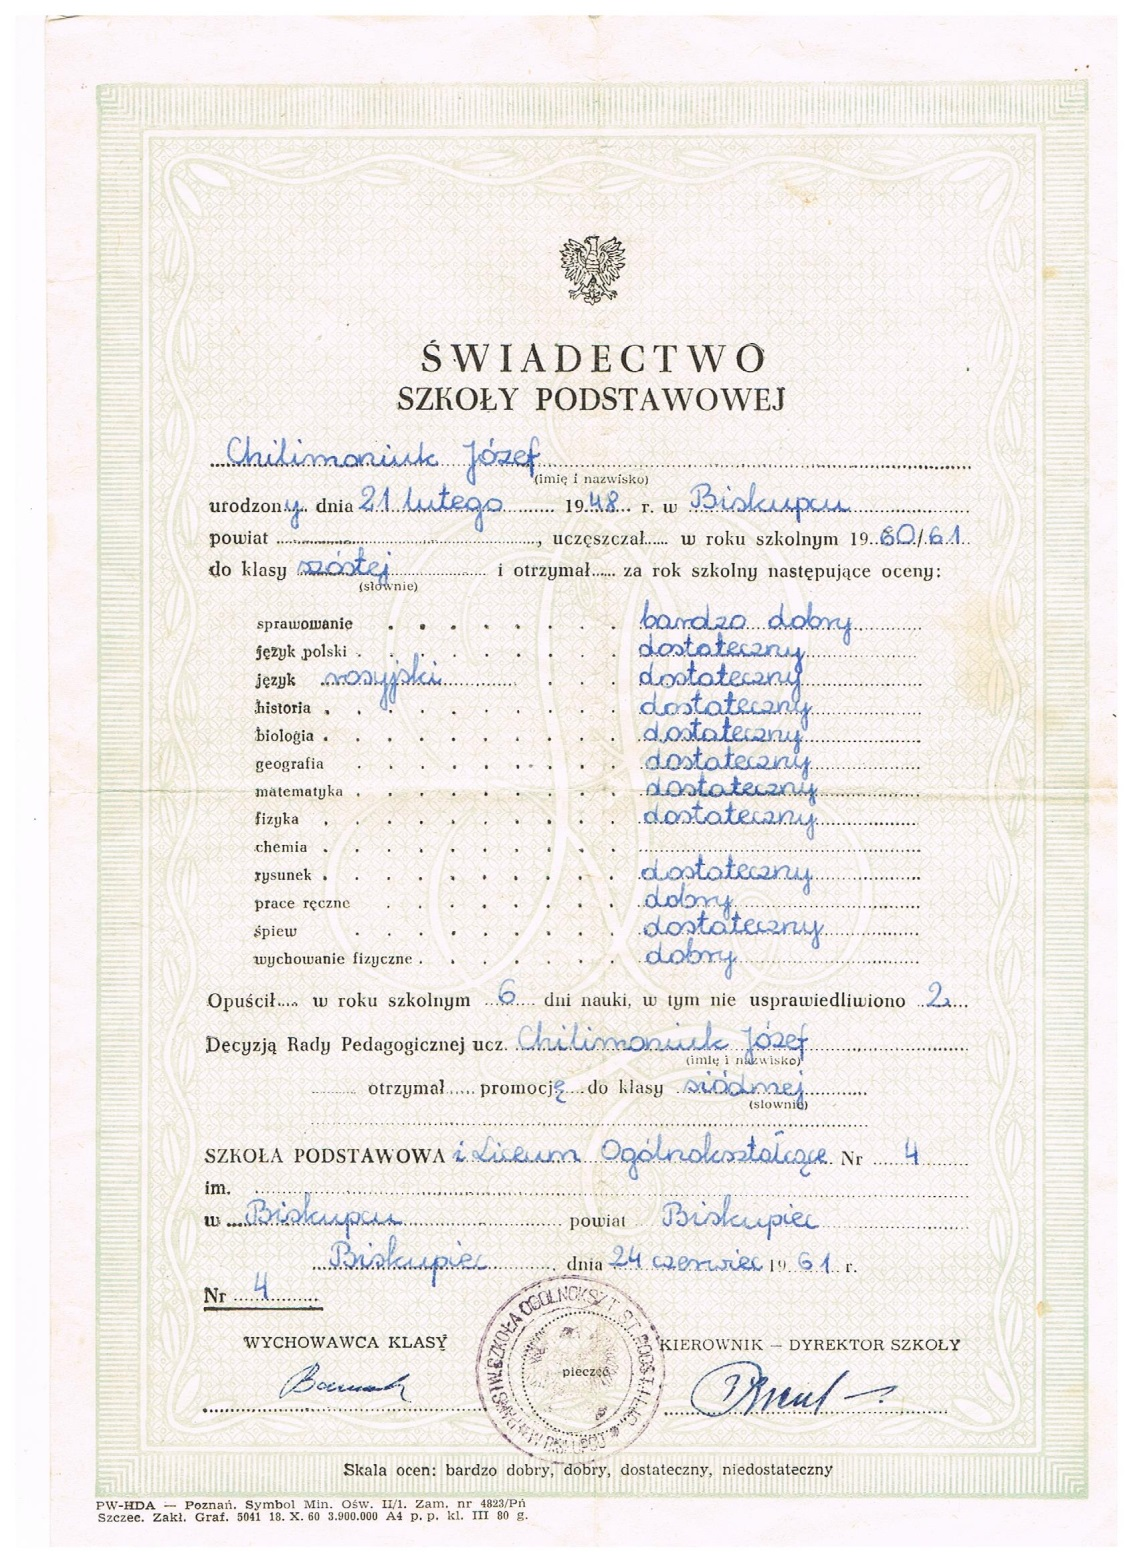 ŚWIADECTWO
SZKOŁY PODSTAWOWEJ
Chilimoniuk Józef
(imię i nazwisko)
urodzony dnia 21 lutego 1948 r. w Biskupcu
powiat ........, uczęszczał..... w roku szkolnym 1960/61
do klasy szóstej i otrzymał..... za rok szkolny następujące oceny:
(słownie)
sprawowanie . . . . . . . . bardzo dobry
język polski . . . . . . . . dostateczny
język rosyjski . . . dostateczny
historia . . . . . . . . . dostateczny
biologia . . . . . . . . . dostateczny
geografia . . . . . . . . dostateczny
matematyka . . . . . . . . dostateczny
fizyka . . . . . . . . . dostateczny
chemia . . . . . . . . .
rysunek . . . . . . . . . dostateczny
prace ręczne . . . . . . . dobry
śpiew . . . . . . . . dostateczny
wychowanie fizyczne . . . . . . dobry
Opuścił.... w roku szkolnym 6 dni nauki, w tym nie usprawiedliwiono 2
Decyzją Rady Pedagogicznej ucz. Chilimoniuk Józef
(imię i nazwisko)
otrzymał..... promocję do klasy siódmej
(słownie)
SZKOŁA PODSTAWOWA i Liceum Ogólnokształcące Nr 4
im.
w Biskupcu powiat Biskupiec
Biskupiec dnia 24 czerwiec 1961 r.
Nr 4
WYCHOWAWCA KLASY KIEROWNIK — DYREKTOR SZKOŁY
pieczęć
Skala ocen: bardzo dobry, dobry, dostateczny, niedostateczny
PW-HDA — Poznań. Symbol Min. Ośw. II/1. Zam. nr 4823/Pń
Szczec. Zakł. Graf. 5041 18. X. 60 3.900.000 A4 p. p. kl. III 80 g.